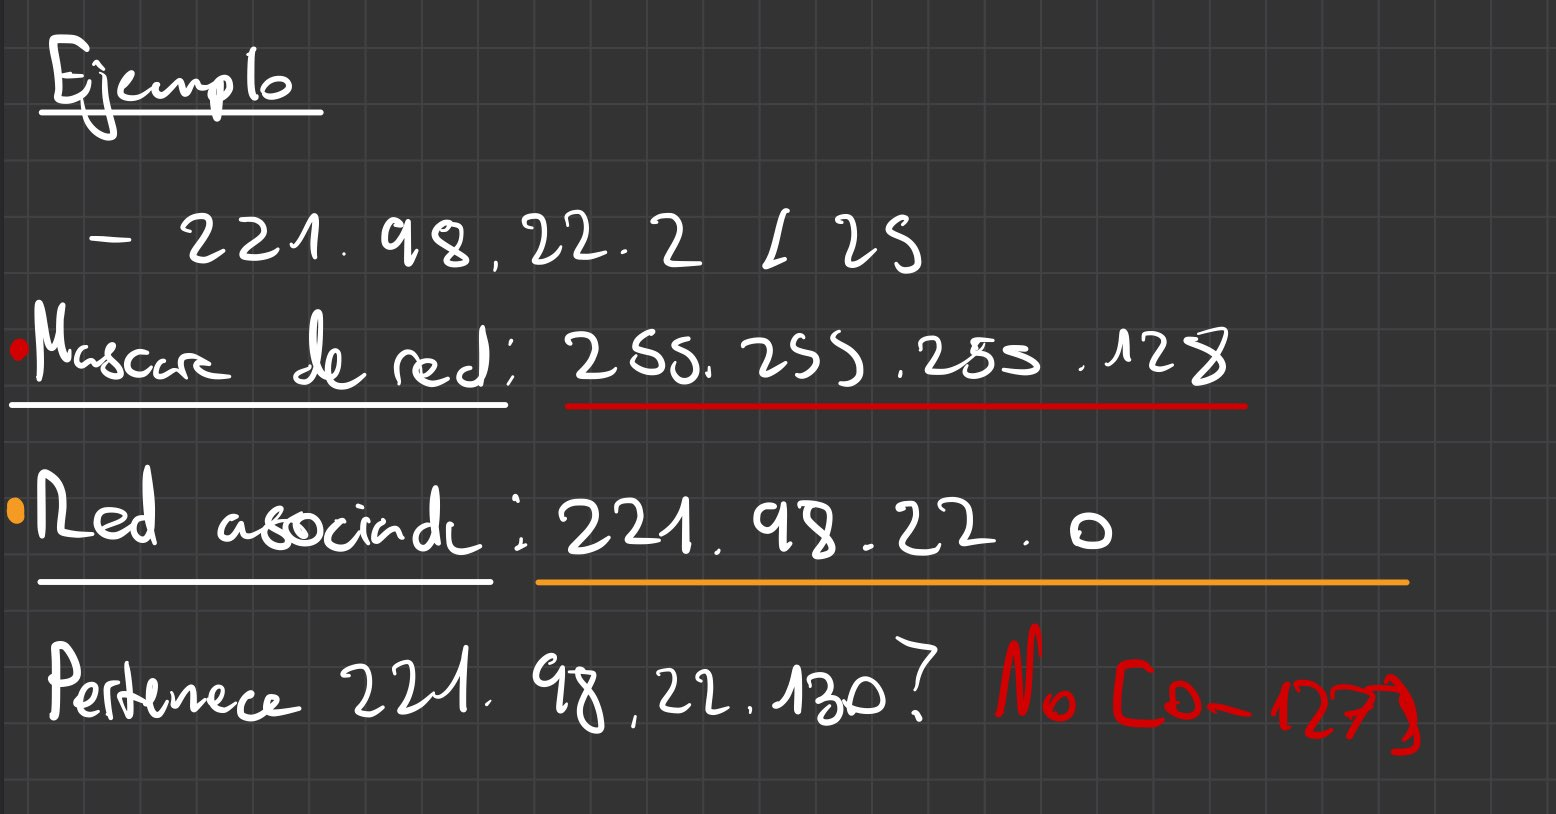 Ejemplo
- 221.98.22.2 / 25
• Mascara de red: 255.255.255.128
• Red asociada: 221.98.22.0
Pertenece 221.98.22.130? No [0-127]